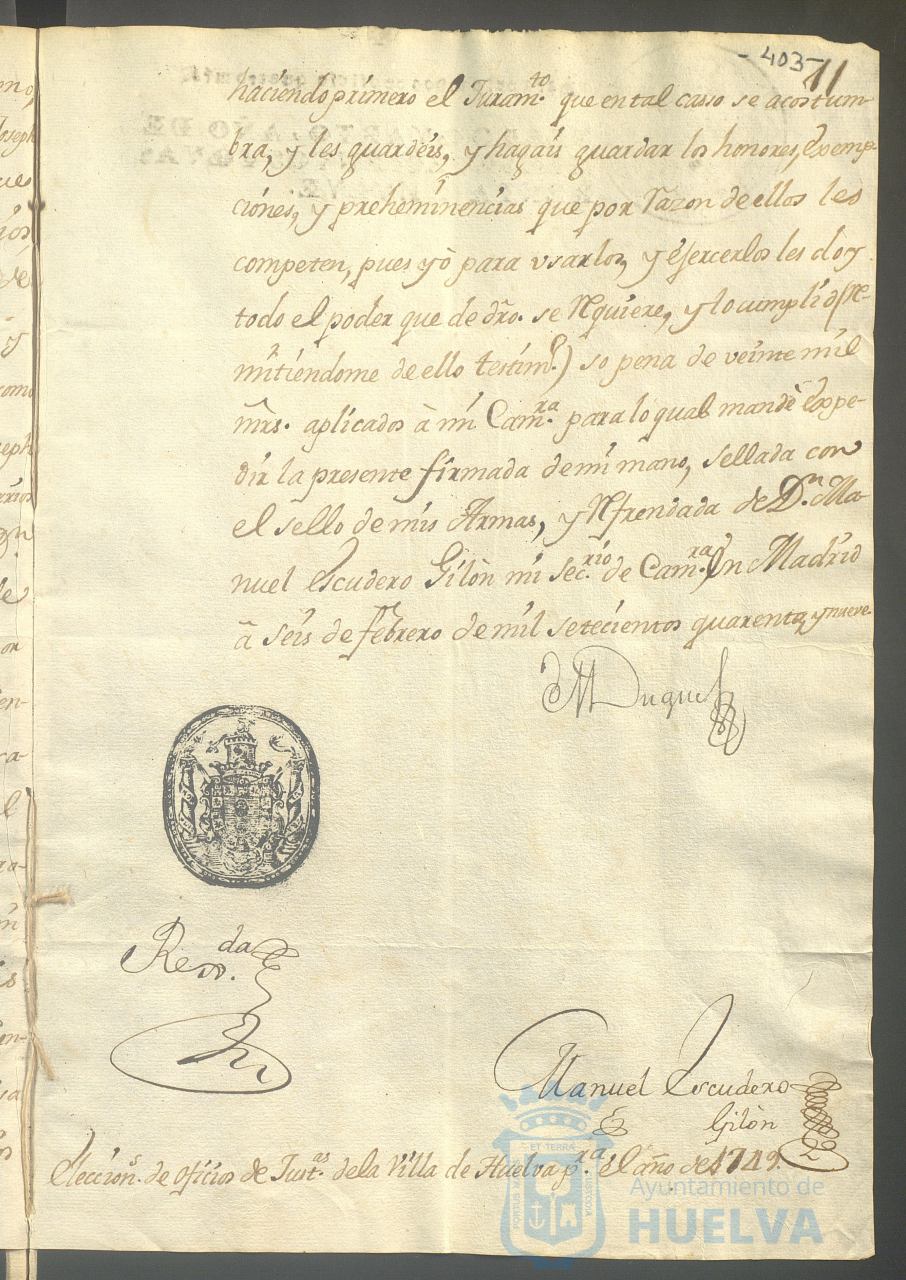 - 403 -
11
haciendo primero el Juram.to que en tal casso se acostum-
bra, y les guardéis, y hagáis guardar los honores, Exemp-
ciónes, y preheminencias que por razon de ellos les
competen, pues yò para vsarlos, y ejercerlos les doy
todo el poder que de dro. se requiere, y lo cumpli d(re-
mitiéndome de ello testim.o) so pena de veinte mil
mrs. aplicados à mi Cam.ra para lo qual mandè Expe-
dir la presente firmada de mi mano, sellada con
el sello de mis Armas, y refrendada de D.n Ma-
nuel Escudero Gilòn mi Sec.rio de Cam.ra En Madrid
à seis de febrero de mil setecientos quarenta, y nueve.
Duque
Reg.da
Manuel Escudero
Gilòn
Eleccion.s de oficios de Just.as de la Villa de Huelva p.ra el año de 1749.
ET TERRÆ
PORTUS
CUSTODIA
Ayuntamiento de
HUELVA